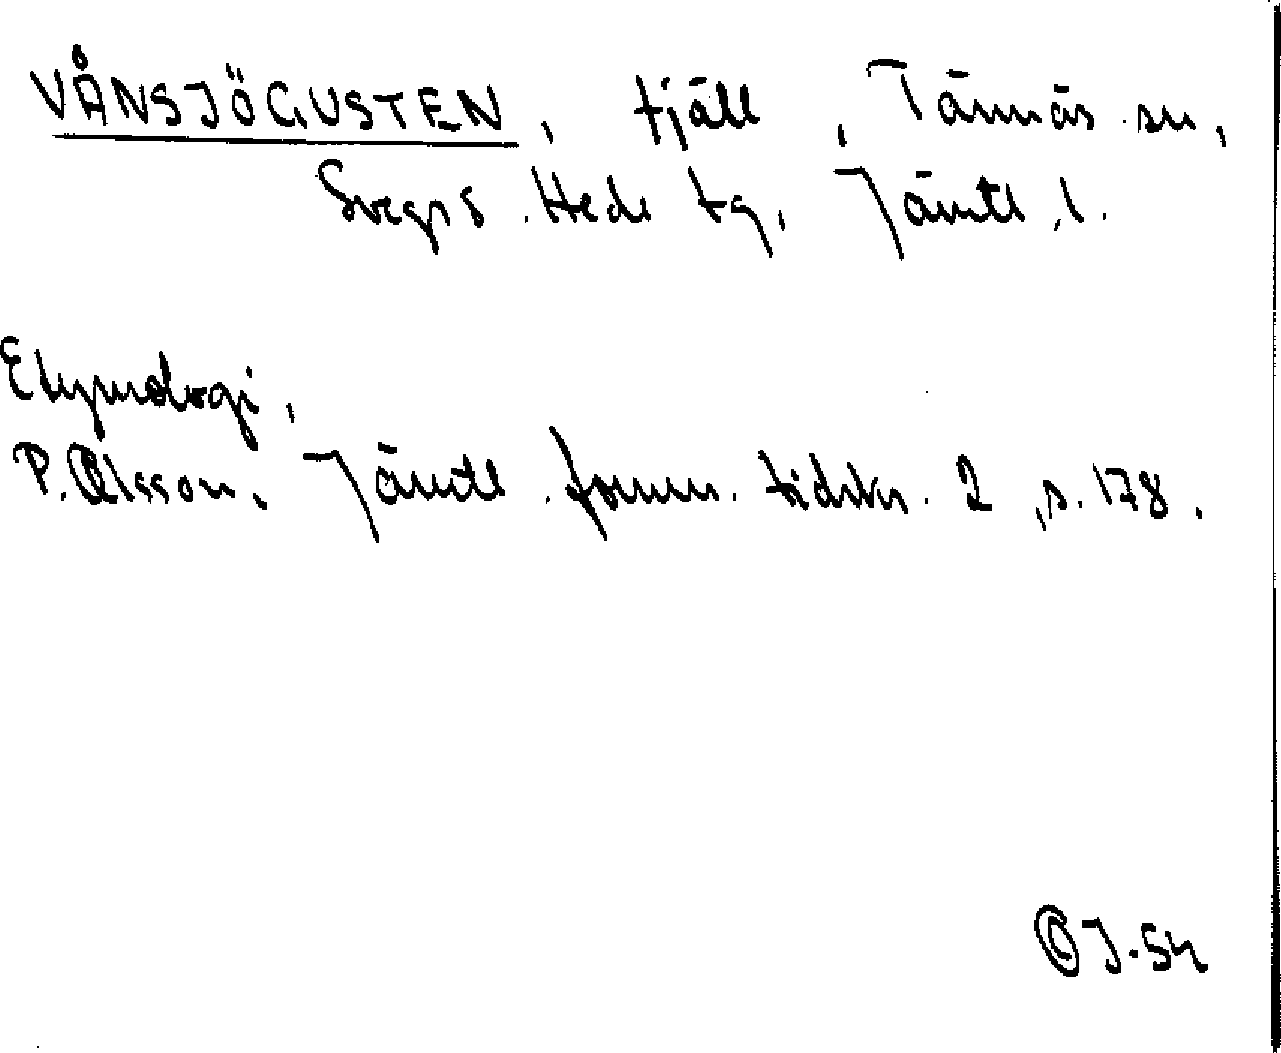 VÅNSJÖGUSTEN, fjäll, Tännäs sn,
Svegs o. Hede tg, Jämtl. l.
Etymologi,
P. Olsson, Jämtl. fornm. tidskr. 2, s. 178.
J-54